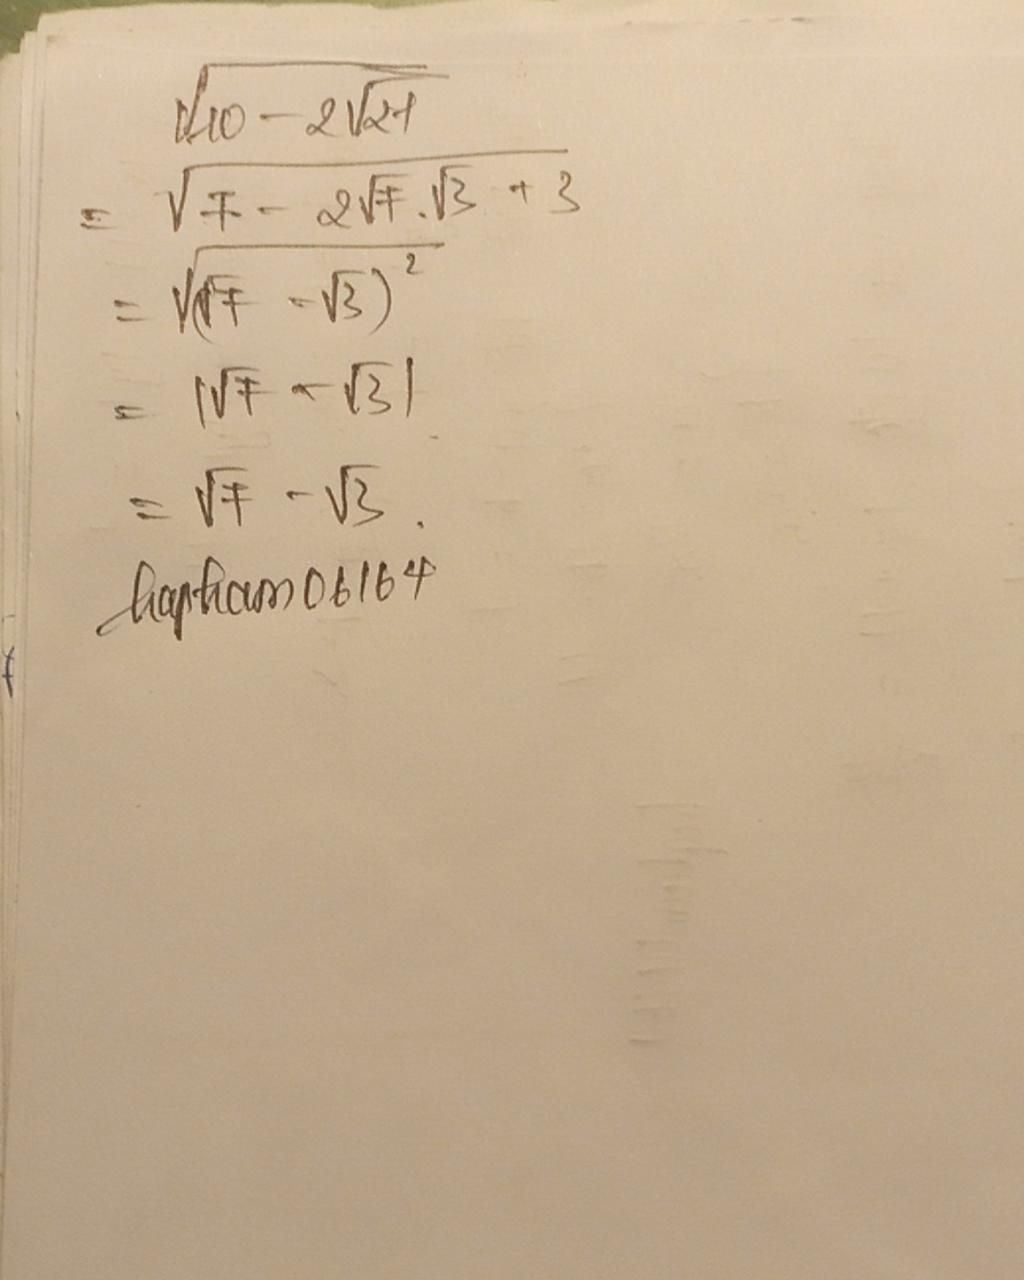 √10 - 2√21
= √7 - 2√7.√3 + 3
= √(√7 - √3)²
= |√7 - √3|
= √7 - √3.
hapham06164